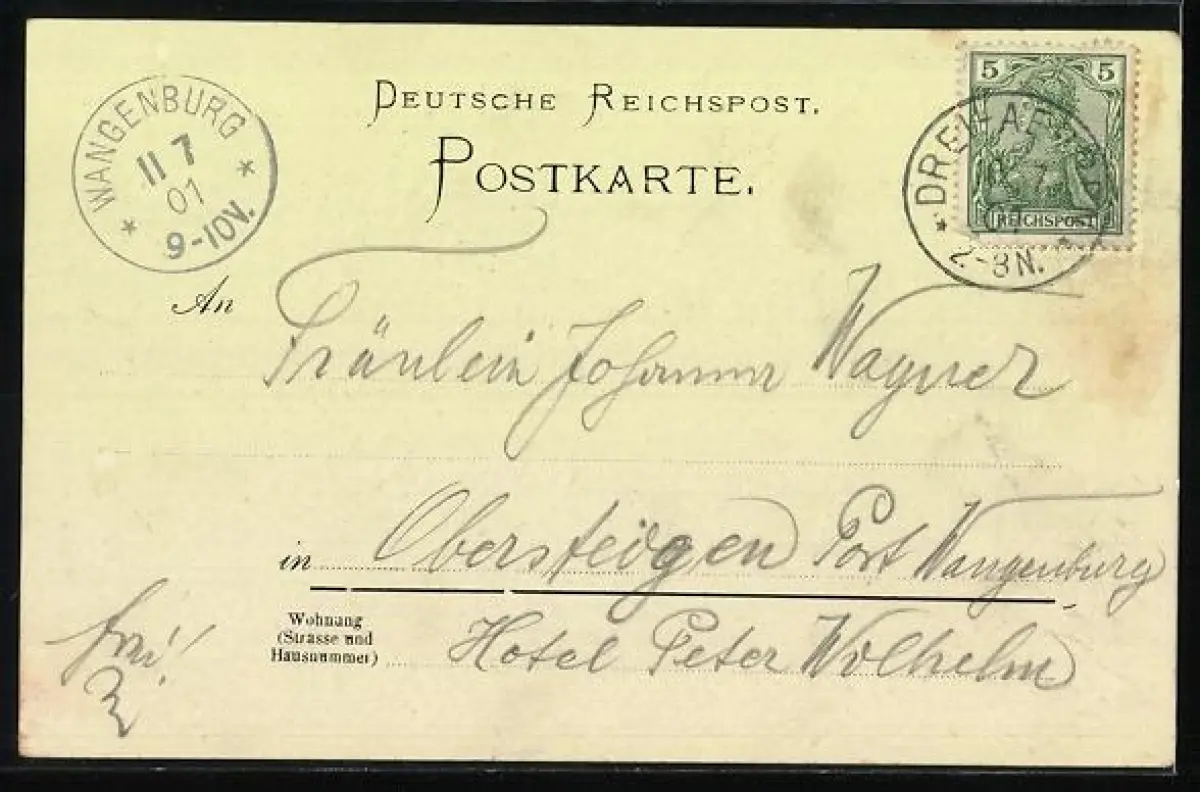 DEUTSCHE REICHSPOST.
POSTKARTE.
WANGENBURG
11 7
01
9-10V.
5 5
REICHSPOST
7
2-3N.
An
Fräulein Johanna Wagner
in Obersteigen Post Wangenburg
Wohnung
(Strasse und
Hausnummer)
Hotel Peter Wolhelm
frei!